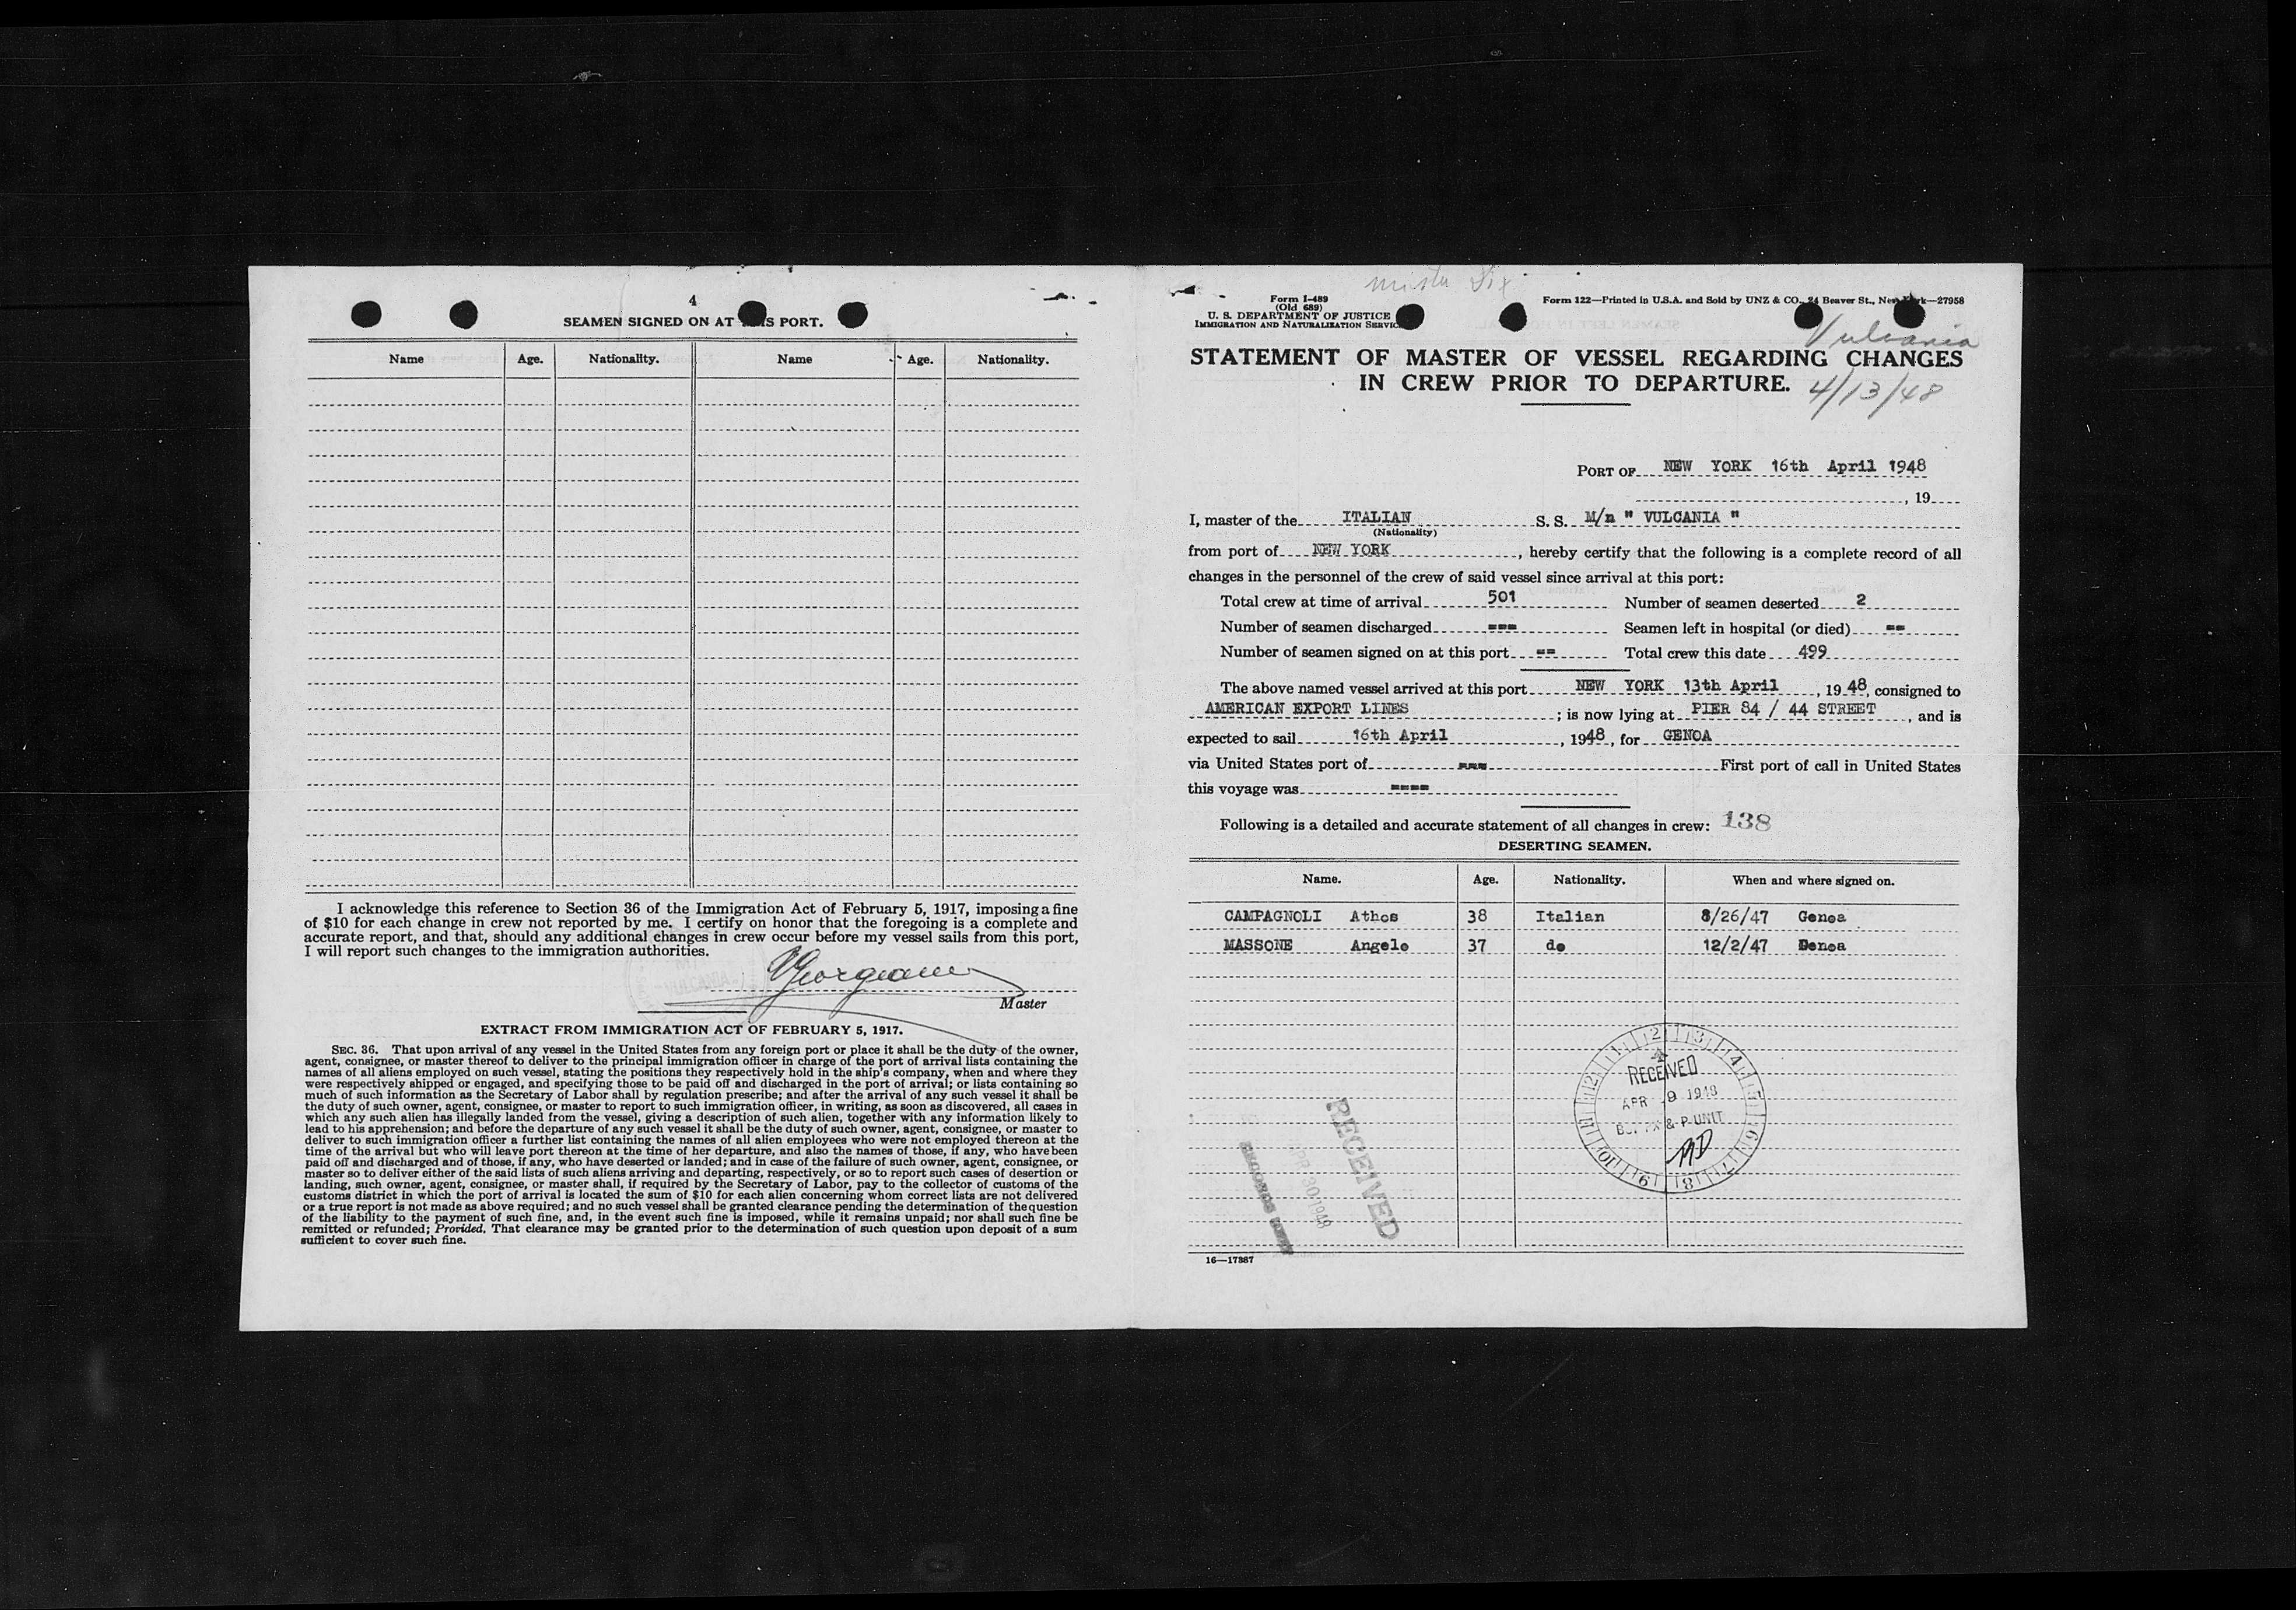 4
SEAMEN SIGNED ON AT THIS PORT.
Name Age. Nationality. Name Age. Nationality.
I acknowledge this reference to Section 36 of the Immigration Act of February 5, 1917, imposing a fine
of $10 for each change in crew not reported by me. I certify on honor that the foregoing is a complete and
accurate report, and that, should any additional changes in crew occur before my vessel sails from this port,
I will report such changes to the immigration authorities.
Master
EXTRACT FROM IMMIGRATION ACT OF FEBRUARY 5, 1917.
SEC. 36. That upon arrival of any vessel in the United States from any foreign port or place it shall be the duty of the owner,
agent, consignee, or master thereof to deliver to the principal immigration officer in charge of the port of arrival lists containing the
names of all aliens employed on such vessel, stating the positions they respectively hold in the ship's company, when and where they
were respectively shipped or engaged, and specifying those to be paid off and discharged in the port of arrival; or lists containing so
much of such information as the Secretary of Labor shall by regulation prescribe; and after the arrival of any such vessel it shall be
the duty of such owner, agent, consignee, or master to report to such immigration officer, in writing, as soon as discovered, all cases in
which any such alien has illegally landed from the vessel, giving a description of such alien, together with any information likely to
lead to his apprehension; and before the departure of any such vessel it shall be the duty of such owner, agent, consignee, or master to
deliver to such immigration officer a further list containing the names of all alien employees who were not employed thereon at the
time of the arrival but who will leave port thereon at the time of her departure, and also the names of those, if any, who have been
paid off and discharged and of those, if any, who have deserted or landed; and in case of the failure of such owner, agent, consignee, or
master so to deliver either of the said lists of such aliens arriving and departing, respectively, or so to report such cases of desertion or
landing, such owner, agent, consignee, or master shall, if required by the Secretary of Labor, pay to the collector of customs of the
customs district in which the port of arrival is located the sum of $10 for each alien concerning whom correct lists are not delivered
or a true report is not made as above required; and no such vessel shall be granted clearance pending the determination of the question
of the liability to the payment of such fine, and, in the event such fine is imposed, while it remains unpaid; nor shall such fine be
remitted or refunded; Provided, That clearance may be granted prior to the determination of such question upon deposit of a sum
sufficient to cover such fine.
Form I-489
(Old 689)
U. S. DEPARTMENT OF JUSTICE
IMMIGRATION AND NATURALIZATION SERVICE
Form 122—Printed in U.S.A. and Sold by UNZ & CO., 24 Beaver St., New York—27958
Vulcania
STATEMENT OF MASTER OF VESSEL REGARDING CHANGES
IN CREW PRIOR TO DEPARTURE.
4/13/48
PORT OF NEW YORK 16th April 1948
, 19
I, master of the ITALIAN S. S. M/n " VULCANIA "
(Nationality)
from port of NEW YORK, hereby certify that the following is a complete record of all
changes in the personnel of the crew of said vessel since arrival at this port:
Total crew at time of arrival 501 Number of seamen deserted 2
Number of seamen discharged --- Seamen left in hospital (or died) --
Number of seamen signed on at this port -- Total crew this date 499
The above named vessel arrived at this port NEW YORK 13th April, 1948, consigned to
AMERICAN EXPORT LINES; is now lying at PIER 84 / 44 STREET, and is
expected to sail 16th April, 1948, for GENOA
via United States port of --- First port of call in United States
this voyage was ----
Following is a detailed and accurate statement of all changes in crew: 138
DESERTING SEAMEN.
Name. Age. Nationality. When and where signed on.
CAMPAGNOLI Athos 38 Italian 8/26/47 Genoa
MASSONE Angelo 37 do 12/2/47 Genoa
RECEIVED
APR 9 1948
& P UNIT
RECEIVED
APR 30 1948
16—17887